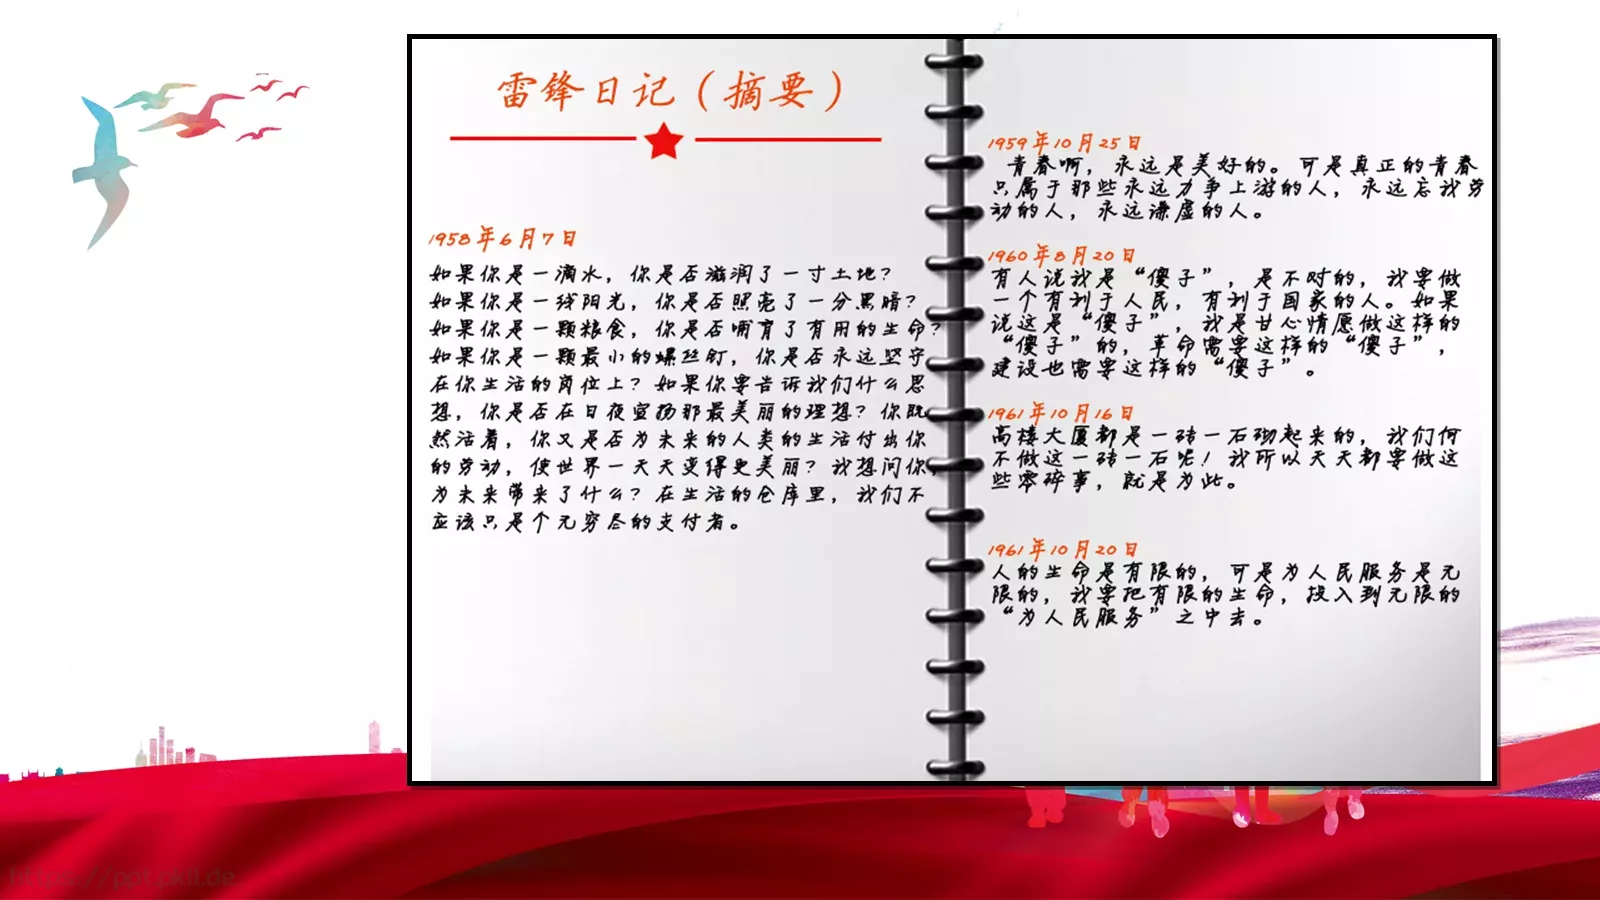 雷锋日记（摘要）
1958年6月7日
如果你是一滴水，你是否滋润了一寸土地？
如果你是一线阳光，你是否照亮了一分黑暗？
如果你是一颗粮食，你是否哺育了有用的生命？
如果你是一颗最小的螺丝钉，你是否永远坚守
在你生活的岗位上？如果你要告诉我们什么思
想，你是否在日夜宣扬那最美丽的理想？你既
然活着，你又是否为未来的人类的生活付出你
的劳动，使世界一天天变得更美丽？我想问你，
为未来带来了什么？在生活的仓库里，我们不
应该只是个无穷尽的支付者。
1959年10月25日
青春啊，永远是美好的。可是真正的青春
只属于那些永远力争上游的人，永远忘我劳
动的人，永远谦虚的人。
1960年8月20日
有人说我是“傻子”，是不对的，我要做
一个有利于人民，有利于国家的人。如果
说这是“傻子”，我是甘心情愿做这样的
“傻子”的，革命需要这样的“傻子”，
建设也需要这样的“傻子”。
1961年10月16日
高楼大厦都是一砖一石砌起来的，我们何
不做这一砖一石呢！我所以天天都要做这
些零碎事，就是为此。
1961年10月20日
人的生命是有限的，可是为人民服务是无
限的，我要把有限的生命，投入到无限的
“为人民服务”之中去。
https://ppt.pkll.de